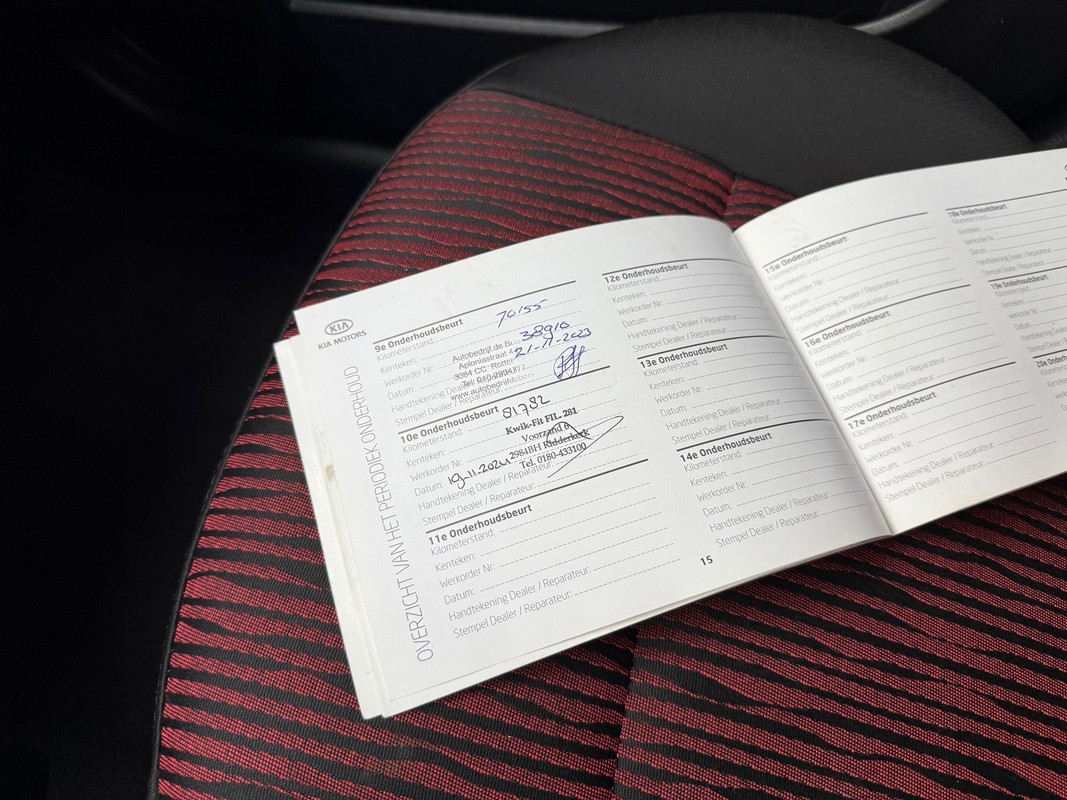 KIA
KIA MOTORS
OVERZICHT VAN HET PERIODIEK ONDERHOUD
9e Onderhoudsbeurt
Kilometerstand: 70155
Kenteken:
Werkorder Nr: 38910
Datum: 21-11-2023
Handtekening Dealer / Reparateur:
Stempel Dealer / Reparateur:
Autobedrijf de
Aploniastraat
3084 CC Rotter
Tel: 010-
www.autobedrijf
10e Onderhoudsbeurt
Kilometerstand: 81782
Kenteken:
Werkorder Nr:
Datum: 19-11-2024
Handtekening Dealer / Reparateur:
Stempel Dealer / Reparateur:
Kwik-Fit FIL. 281
Voorzand 6
2984BH Ridderkerk
Tel. 0180-433100
11e Onderhoudsbeurt
Kilometerstand:
Kenteken:
Werkorder Nr:
Datum:
Handtekening Dealer / Reparateur:
Stempel Dealer / Reparateur:
12e Onderhoudsbeurt
Kilometerstand:
Kenteken:
Werkorder Nr:
Datum:
Handtekening Dealer / Reparateur:
Stempel Dealer / Reparateur:
13e Onderhoudsbeurt
Kilometerstand:
Kenteken:
Werkorder Nr:
Datum:
Handtekening Dealer / Reparateur:
Stempel Dealer / Reparateur:
14e Onderhoudsbeurt
Kilometerstand:
Kenteken:
Werkorder Nr:
Datum:
Handtekening Dealer / Reparateur:
Stempel Dealer / Reparateur:
15
15e Onderhoudsbeurt
Kilometerstand:
Kenteken:
Werkorder Nr:
Datum:
Handtekening Dealer / Reparateur:
Stempel Dealer / Reparateur:
16e Onderhoudsbeurt
Kilometerstand:
Kenteken:
Werkorder Nr:
Datum:
Handtekening Dealer / Reparateur:
Stempel Dealer / Reparateur:
17e Onderhoudsbeurt
Kilometerstand:
Kenteken:
Werkorder Nr:
Datum:
Handtekening Dealer / Reparateur:
Stempel Dealer / Reparateur:
18e Onderhoudsbeurt
Kilometerstand:
Kenteken:
Werkorder Nr:
Datum:
Handtekening Dealer / Reparateur:
Stempel Dealer / Reparateur:
19e Onderhoudsbeurt
Kilometerstand:
Kenteken:
Werkorder Nr:
Datum:
Handtekening Dealer
Stempel Dealer
20e Onderhoudsbeurt
Kilometerstand:
Kenteken:
Werkorder Nr:
Datum:
Handtekening
Stempel Dealer